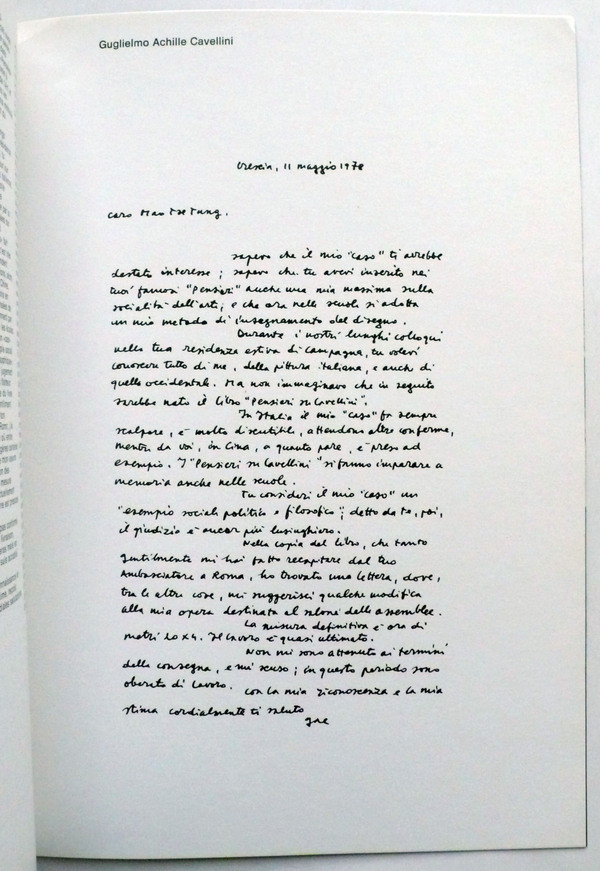 Guglielmo Achille Cavellini
Brescia, 11 maggio 1978
Caro Mao Tse Tung.
sapevo che il mio "caso" ti avrebbe
destato interesse; sapevo che tu avevi inserito nei
tuoi famosi "Pensieri" anche una mia massima sulla
socialità dell'arte; e che ora nelle scuole si adotta
un mio metodo di insegnamento del disegno.
Durante i nostri lunghi colloqui
nella tua residenza estiva di campagna, tu volevi
conoscere tutto di me, della pittura italiana, e anche di
quella occidentale. Ma non immaginavo che in seguito
sarebbe nato il libro "Pensieri su Cavellini".
In Italia il mio "caso" fa sempre
scalpore, è molto discutibile, attendono altre conferme,
mentre da voi, in Cina, a quanto pare, è preso ad
esempio. I "Pensieri su Cavellini" si fanno imparare a
memoria anche nelle scuole.
Tu consideri il mio "caso" un
"esempio sociale politico e filosofico"; detto da te, poi,
il giudizio è ancor più lusinghiero.
Nella copia del libro, che tanto
gentilmente mi hai fatto recapitare dal tuo
Ambasciatore a Roma, ho trovato una lettera, dove,
tra le altre cose, mi suggerisci qualche modifica
alla mia opera destinata al salone delle assemblee.
La misura definitiva è ora di
metri 20x4. Il lavoro è quasi ultimato.
Non mi sono attenuto ai termini
della consegna, e mi scuso; in questo periodo sono
oberato di lavoro. Con la mia riconoscenza e la mia
stima cordialmente ti saluto
gac